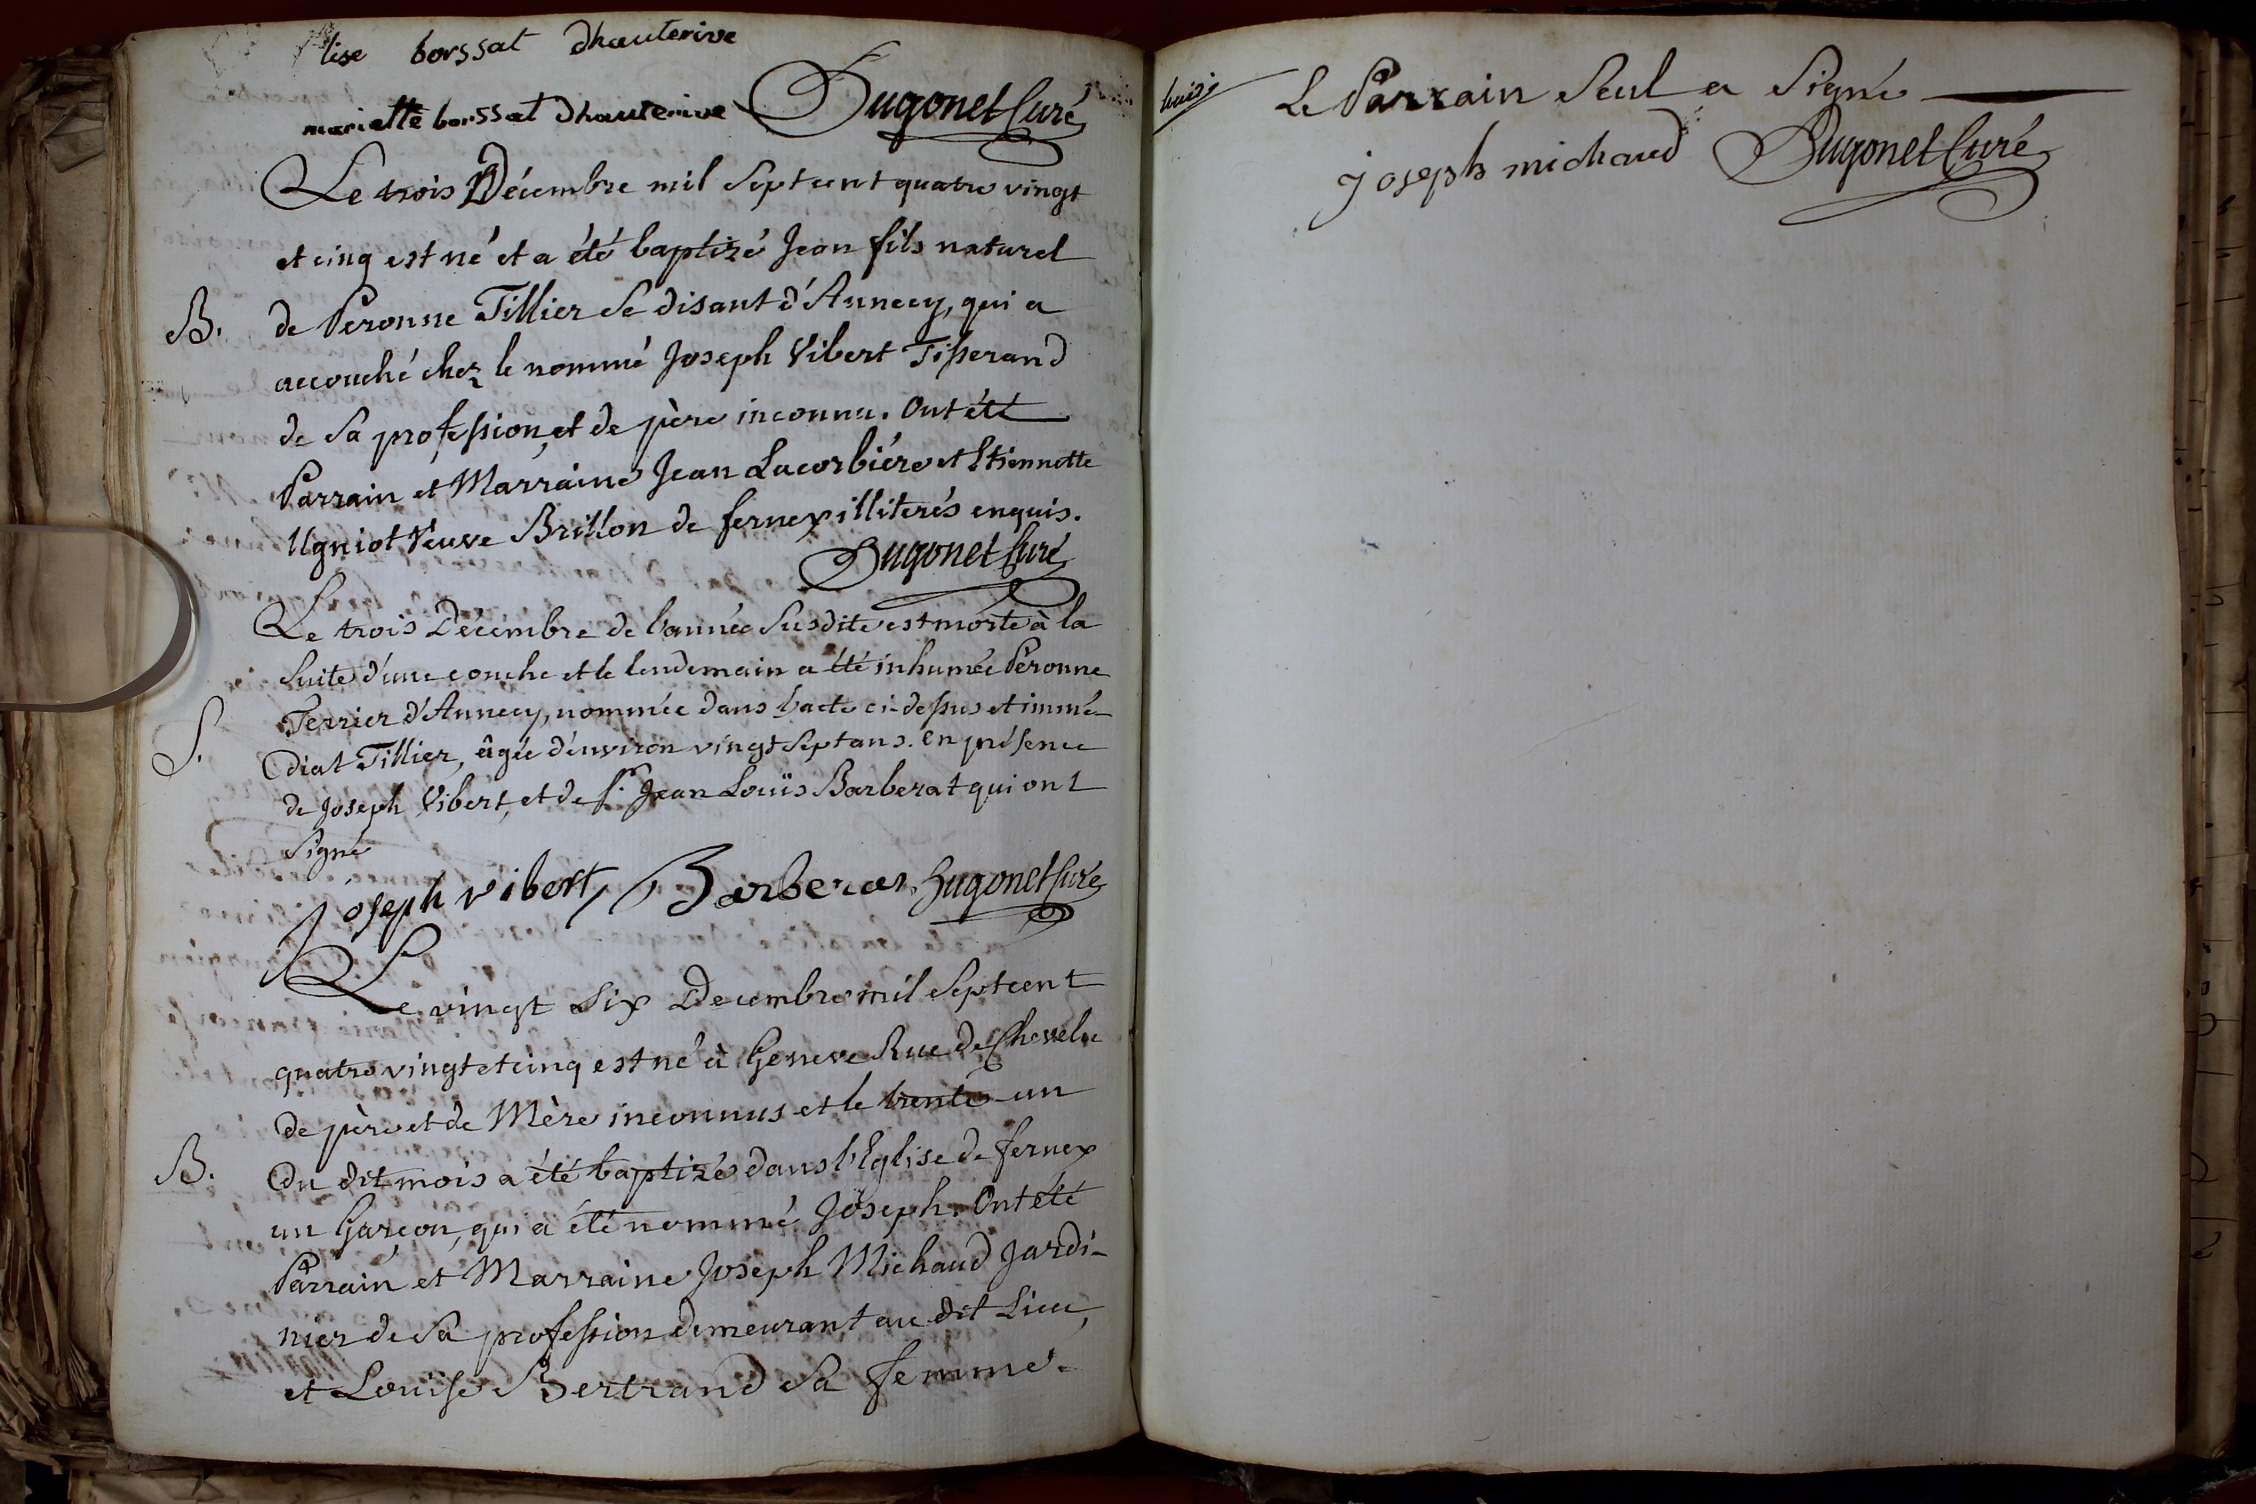 lise borssat Dhauterive
mariette borssat Dhauterive Hugonet Curé
Le trois Décembre mil Sept cent quatre vingt
et cinq est né et a été baptizé Jean fils naturel
B. de Péronne Tillier Se disant d'Annecy, qui a
accouché chez le nommé Joseph Vibert Tisserand
de Sa profession, et de père inconnu. Ont été
Parrain et Marraine Jean Lacorbière et Etiennette
Ugniot Veuve Brillon de fernex illiterés enquis.
Hugonet Curé
Le trois Décembre de l'année Susdite est morte à la
Suite d'une couche et le lendemain a été inhumée Péronne
S. Terrier d'Annecy, nommée dans l'acte ci-dessus et immé-
diat Tillier, âgée d'environ vingt Sept ans. en présence
de Joseph Vibert, et de Sr. Jean Louïs Barberat qui ont
Signé
Joseph vibert Barberat Hugonet Curé
Le vingt Six Decembre mil Sept cent
quatre vingt et cinq est né à Geneve Rue de Chevelu
de père et de Mère inconnus et le trente-un
B. du dit mois a été baptizé dans l'Eglise de fernex
un Garçon, qui a été nommé Joseph. Ont été
Parrain et Marraine Joseph Michaud Jardi-
nier de Sa profession demeurant au dit Lieu,
et Louise Bertrand Sa femme.
Le Parrain Seul a Signé
joseph michaud Hugonet Curé